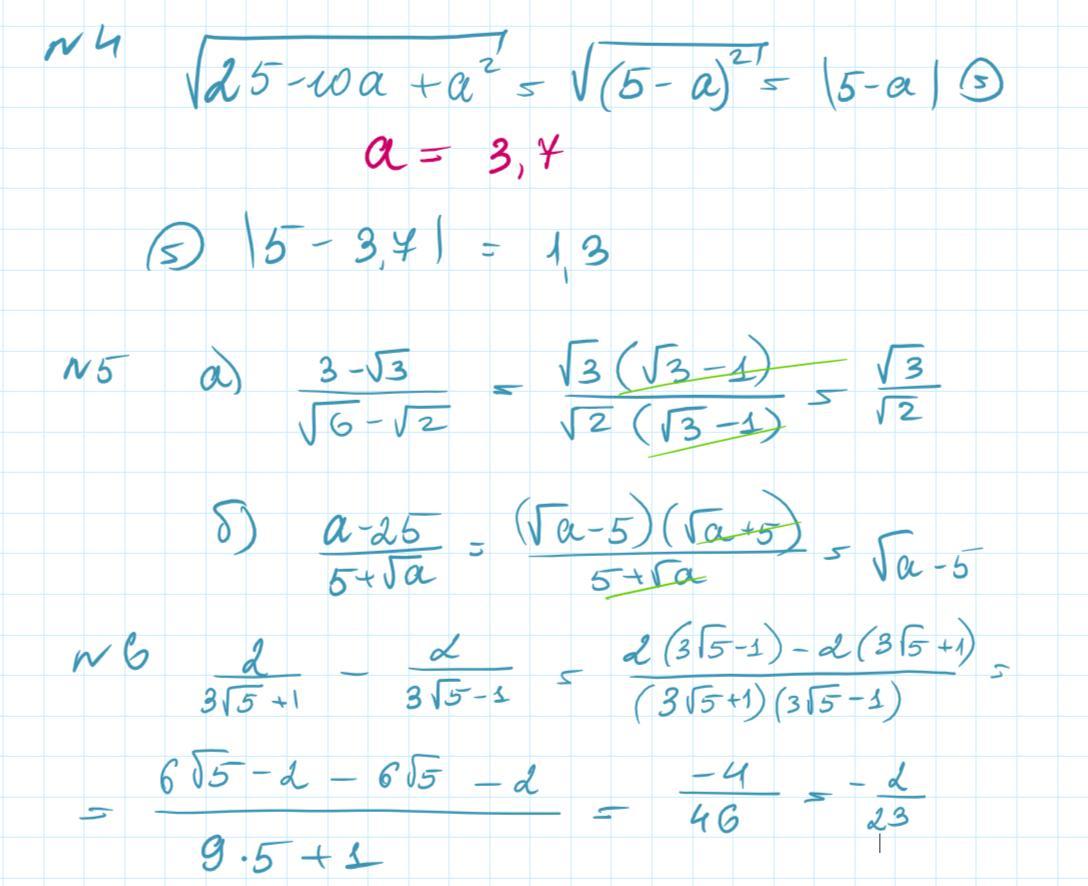 №4 √(25-10a+a²) = √((5-a)²) = |5-a| =
a = 3,7
= |5-3,7| = 1,3
№5 а) (3-√3)/(√6-√2) = (√3(√3-1))/(√2(√3-1)) = √3/√2
б) (a-25)/(5+√a) = ((√a-5)(√a+5))/(5+√a) = √a-5
№6 2/(3√5+1) - 2/(3√5-1) = (2(3√5-1)-2(3√5+1))/((3√5+1)(3√5-1)) =
= (6√5-2-6√5-2)/(9·5+1) = -4/46 = -2/23